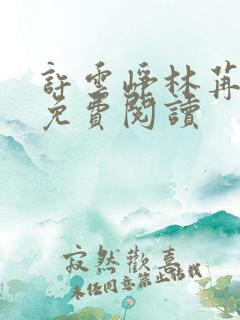 許雲崢林苒
免費閱讀
寂然歡喜
未经同意禁止搭找